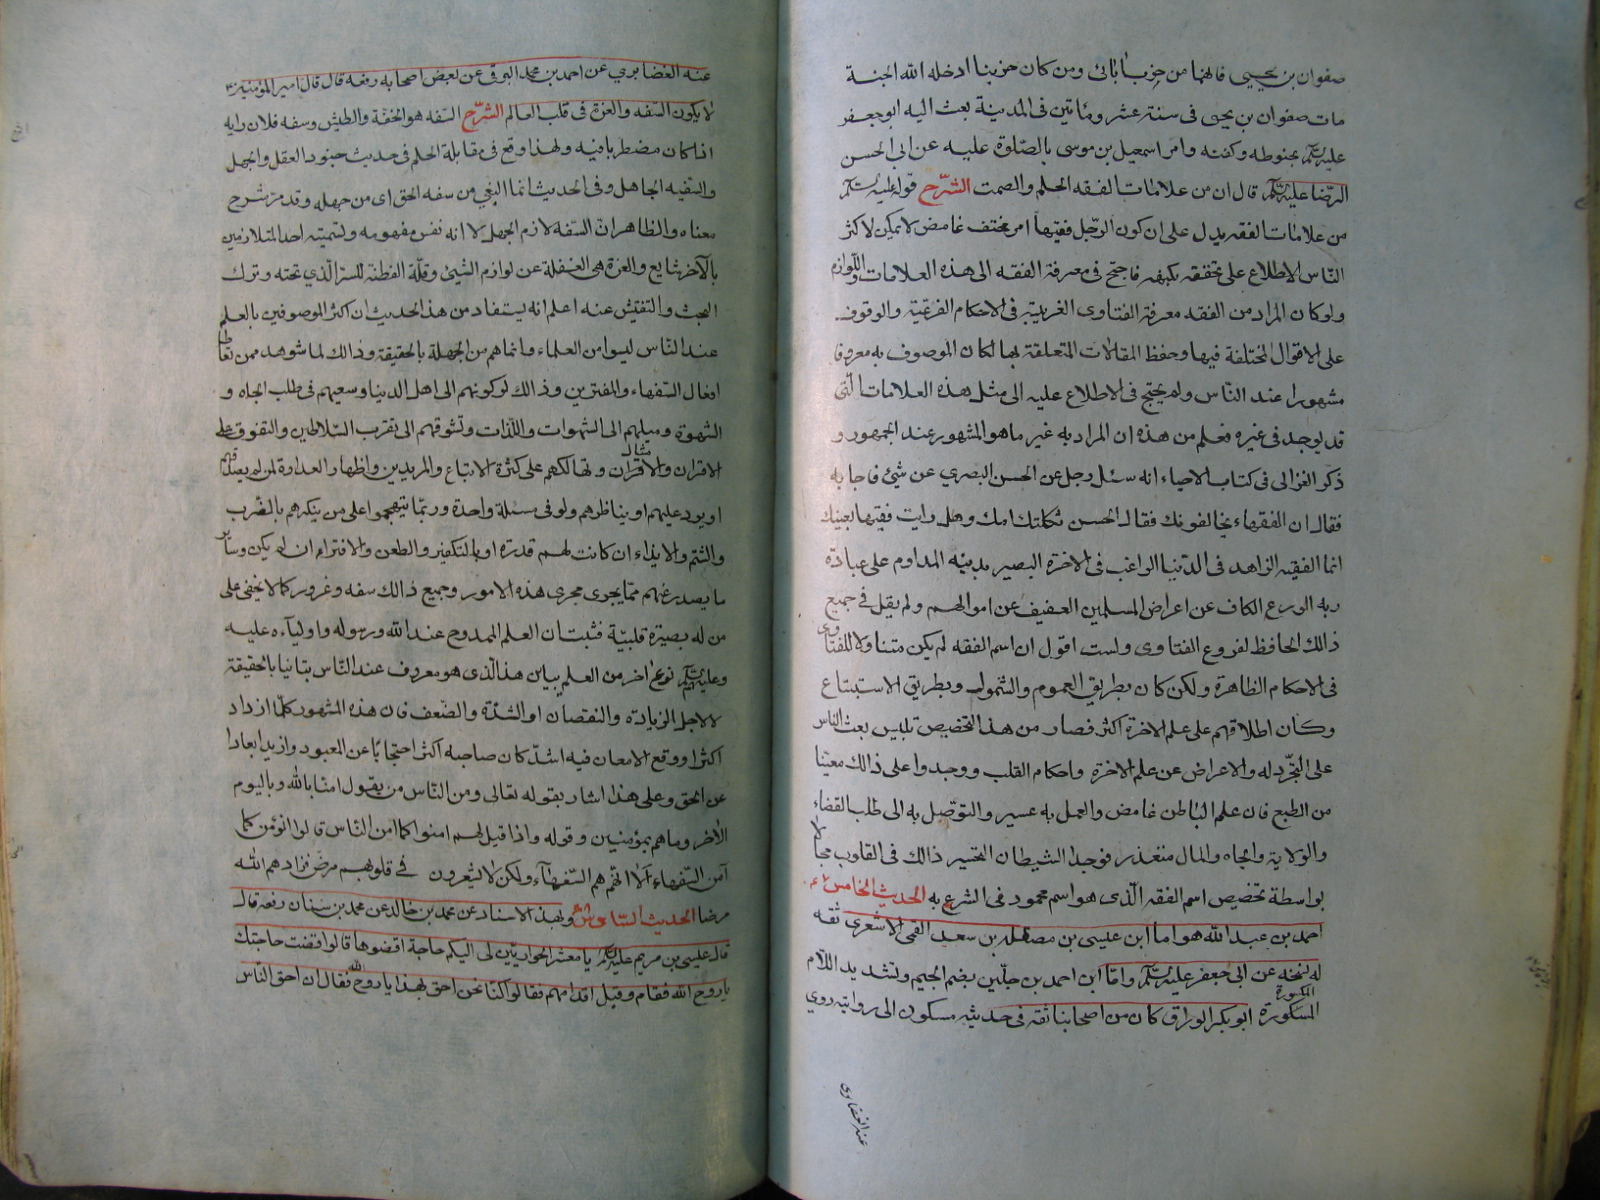 صفوان بن يحيى فانهما من حزب ابائى ومن كان حزبنا ادخله الله الجنة
مات صفوان بن يحيى فى سنة عشر ومأتين فى المدينة بعث اليه ابو جعفر
عليه السلم بحنوطه وكفنه وامر اسمعيل بن موسى بالصّلوة عليه عن ابى الحسن
الرّضا عليه السلم قال ان من علامات الفقه الحلم والصمت الشّرح قوله عليه السلم
من علامات الفقه يدل على ان كون الرّجل فقيها امر مختف غامض لا يمكن لاكثر
النّاس الاطلاع على تحققه بكنهه فاحتج فى معرفة الفقه الى هذه العلامات واللّوازم
ولو كان المراد من الفقه معرفة الفتاوى الغريبة فى الاحكام الفرعيّة والوقوف
على الاقوال المختلفة فيها وحفظ المقالات المتعلقة بها لكان الموصوف به معروفا
مشهورا عند النّاس ولم يحتج فى الاطلاع عليه الى مثل هذه العلامات الّتى
قد يوجد فى غيره فعلم من هذه ان المراد به غير ما هو المشهور عند الجمهور و
ذكر الغزالى فى كتاب الاحياء انه سئل رجل عن الحسن البصري عن شئ فاجابه
فقال ان الفقهاء يخالفونك فقال الحسن ثكلتك امك وهل رايت فقيها بعينك
انما الفقيه الزاهد فى الدّنيا الراغب فى الاخرة البصير بدينه المداوم على عبادة
ربه الورع الكاف عن اعراض المسلمين العفيف عن اموالهم ولم يقل فى جميع
ذالك الحافظ لفروع الفتاوى ولست اقول ان اسم الفقه لم يكن متناولا للفتاوى
فى الاحكام الظاهرة ولكن كان بطريق العموم والشّمول وبطريق الاستتباع
وكان اطلاقهم على علم الاخرة اكثر فصار من هذا التخصيص تلبيس بعث النّاس
على التّجّرد له والاعراض عن علم الاخرة واحكام القلب ووجدوا على ذالك معينا
من الطبع فان علم الباطن غامض والعمل به عسير والتوّصّل به الى طلب القضاء
والولاية والجاه والمال متعذر فوجد الشيطان لتحسير ذالك فى القلوب مجالا
بواسطة تخصيص اسم الفقه الّذى هو اسم محمود فى الشرع به الحديث الخامس
احمد بن عبد الله هو اما ابن عيسى بن مصقلة بن سعد القمى الاشعرى ثقه
له نسخه عن ابى جعفر عليه السلم وامّا ابن احمد بن جلّين بضم الجيم وتشديد اللاّم
المكسورة
ابو بكر الوراق كان من اصحابنا ثقه فى حديثه مسكون الى روايته روي
عنه الغضايرى
عنه الغضايري عن احمد بن محمد البرقى عن بعض اصحابه رفعه قال قال امير المؤمنين
لا يكون السّفه والغرة فى قلب العالم الشّرح السّفه هو الخفّة والطيش وسفه فلان رايه
اذا كان مضطربا فيه ولهذا وقع فى مقابلة الحلم فى حديث جنود العقل والجهل
والسّفيه الجاهل وفى الحديث انما البغي من سفه الحق اى من جهله وقد مرّ شرح
معناه والظاهر انّ السّفه لازم الجهل لا انه نفس مفهومه وتسميته احد المتلازمين
بالآخر شايع والغرة هى الغفلة عن لوازم الشّئ وقلّة الفطنة للسرّ الّذي تحته وترك
البحث والتفتيش عنه اعلم انه يستفاد من هذا الحديث ان اكثر الموصوفين بالعلم
عند النّاس ليسوا من العلماء وانما هم من الجهلة بالحقيقة وذالك لما شوهد ممن تعاطا
افعال السّفهاء والمغترين وذالك لركونهم الى اهل الدنيا وسعيهم فى طلب الجاه و
الشّهوة وميلهم الى الشّهوات واللّذات وتشوقهم الى تقرب السّلاطين والتفوق على
الاقران والامثال وتهالكهم على كثرة الاتباع والمريدين واظهار العداوة لمن لم يصدقهم
او يرد عليهم او يناظرهم ولو فى مسئلة واحدة وربّما يتهجموا على من ينكرهم بالضّرب
والشّتم والايذاء ان كانت لهم قدرة او بالتكفير والطعن والافتراء ان لم يكن وساير
ما يصدر عنهم ممّا يجرى مجرى هذه الامور وجميع ذالك سفه وغرور كما لا يخفى على
من له بصيرة قلبيّة فثبت ان العلم الممدوح عند الله ورسوله واولياءه عليه
وعليهم السلم نوع اخر من العلم يباين هذا الّذى هو معروف عند النّاس بتاينا بالحقيقة
لا لاجل الزيادة والنقصان او الشدّة والضعف فان هذه المشهور كلّما ازداد
اكثرا ووقع الامعان فيه اشدّ كان صاحبه اكثر احتجابًا عن المعبود وازيد ابعادا
عن الحق وعلى هذا اشار بقوله تعالى ومن النّاس من يقول امنا بالله وباليوم
الآخر وما هم بمؤمنين وقوله واذا قيل لهم امنوا كما امن النّاس قالوا انؤمن كما
آمن السّفهاء ألا انّهم هم السّفهآء ولكن لا يشعرون فى قلوبهم مرض فزادهم الله
مرضا الحديث السّادس وبهذا الاسناد عن محمد بن خالد عن محمد بن سنان رفعه قال
قال عيسى بن مريم عليه السلم يا معشر الحواريّين لى اليكم حاجة اقضوها قالوا قضت حاجتك
يا روح الله فقام وقبل اقدامهم فقالوا كنّا نحن احق بهذا يا روح الله فقال ان احق النّاس